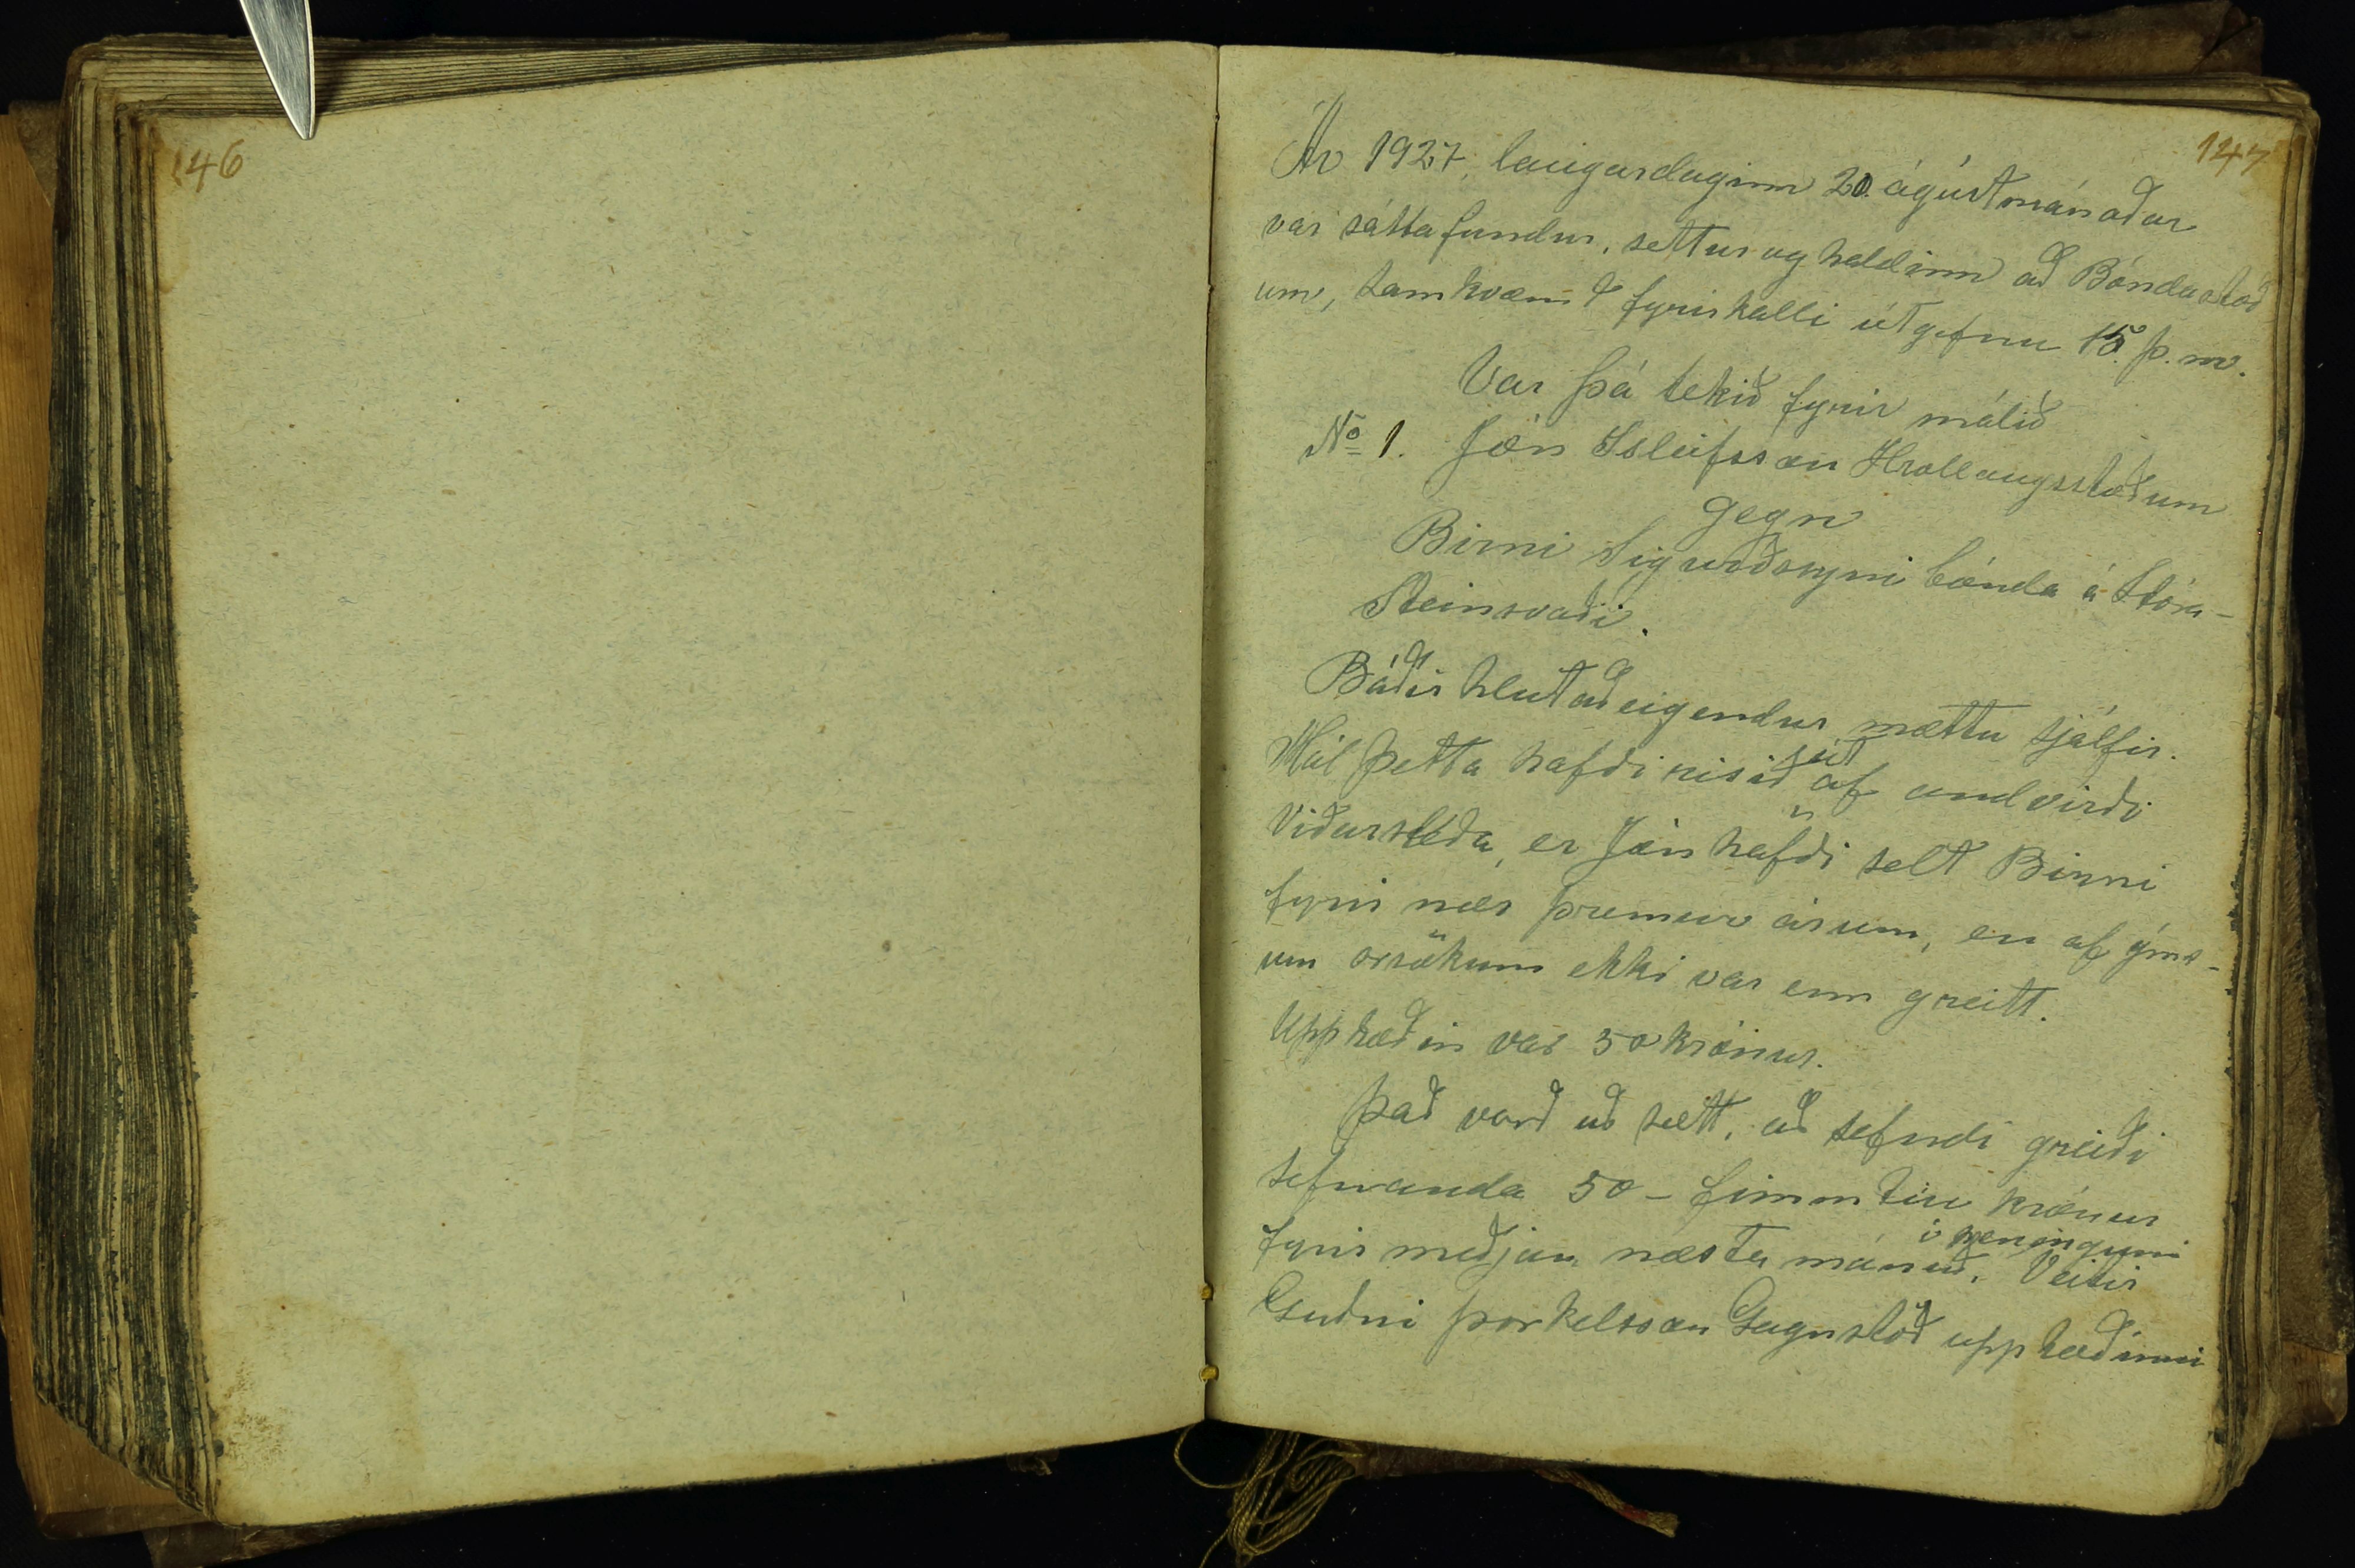 146
147
Ár 1927, laugardaginn 20. ágústmánaðar
var sáttafundur, settur og haldinn að Bóndastöð
um, samkvæmt fyrirkalli útgefnu 15. þ. m.
Var þá tekið fyrir málið
No 1. Jón Ísleifsson Hrollaugsstöðum
gegn
Birni Sigurðssyni bónda á Stóra-
Steinsvaði.
Báðir hlutaðeigendur mættu sjálfir.
Mál þetta hafði risið út af andvirði
viðarsleða, er Jón hafði selt Birni
fyrir nær þremur árum, en af ýms-
um orsökum ekki var enn greitt.
Upphæðin var 50 krónur.
Það varð að sætt, að stefndi greiði
stefnanda 50 - fimmtíu krónur
í peningum
fyrir miðjan næsta mánuð. Veitir
Guðni Þorkelsson Gagnstöð upphæðinni